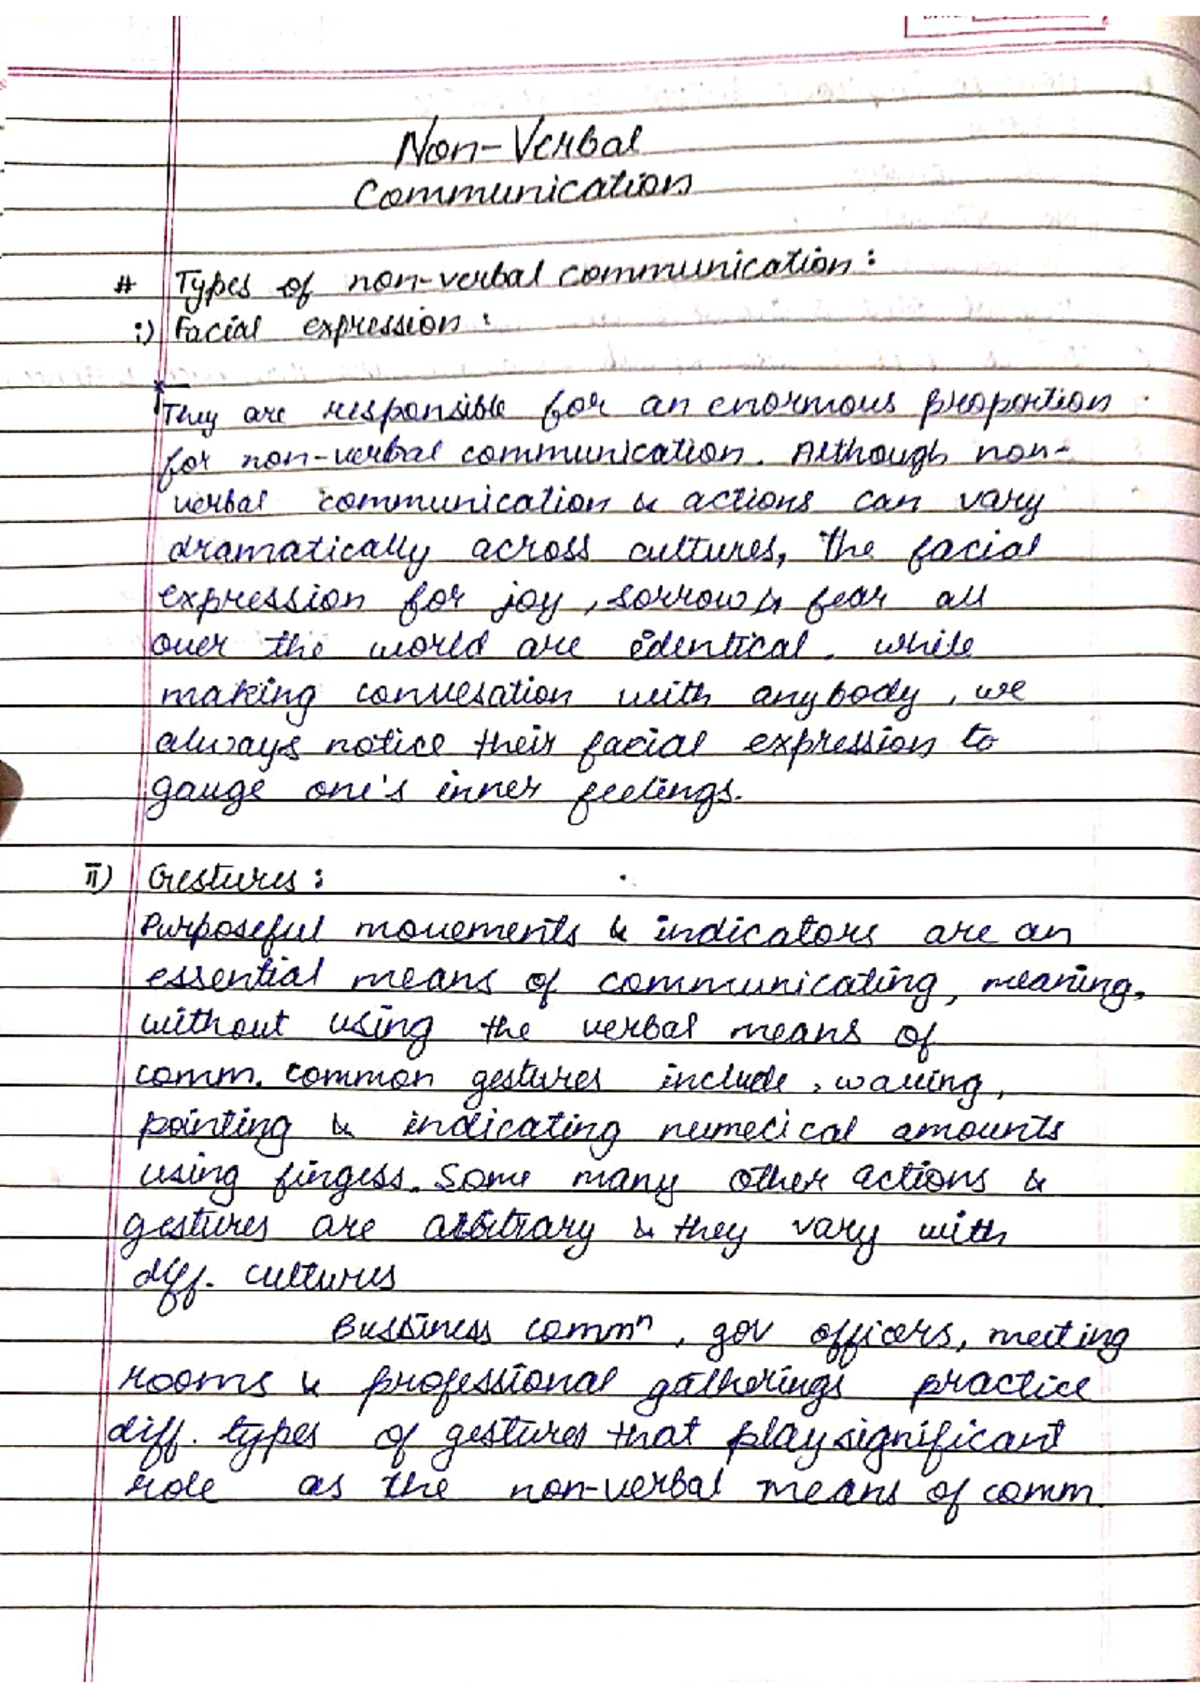 Non-Verbal
Communication
# Types of non-verbal communication:
i) Facial expression:
They are responsible for an enormous proportion
for non-verbal communication. Although non-
verbal communication & actions can vary
dramatically across cultures, the facial
expression for joy, sorrow & fear all
over the world are identical. while
making convesation with anybody, we
always notice their facial expression to
gauge one's inner feelings.
ii) Gestures:
Purposeful movements & indicators are an
essential means of communicating, meaning,
without using the verbal means of
comm. common gestures include, waving,
pointing & indicating numecical amounts
using fingess. Some many other actions &
gestures are arbitrary & they vary with
diff. cultures
Bussiness commⁿ, gov officers, meeting
rooms & professional gatherings practice
diff. types of gestures that play significant
role as the non-verbal means of comm.